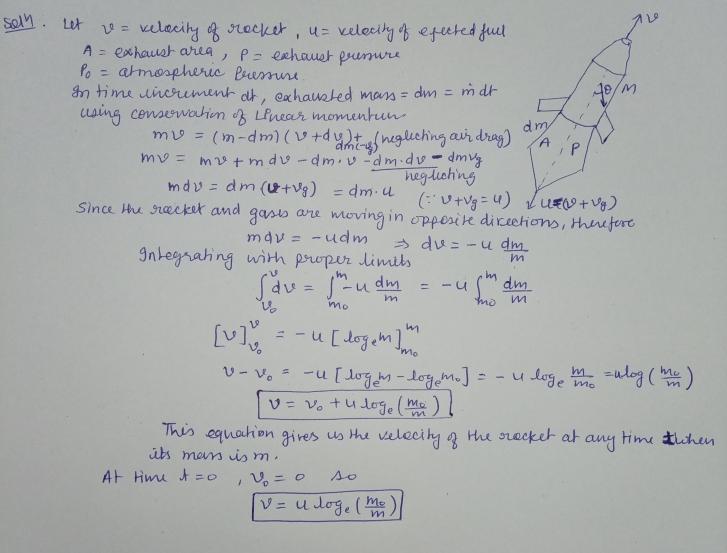 Soln. Let v = velocity of rocket, u = velocity of ejected fuel
A = exhaust area, P = exhaust pressure
P₀ = atmospheric Pressure
In time increment dt, exhausted mass = dm = ṁ dt
using conservation of linear momentum
mv = (m-dm)(v+dv)+ dm(-vg) (neglecting air drag)
mv = mv + mdv - dm.v - dm.dv - dmvg
neglecting
mdv = dm(v+vg) = dm.u (∵ v+vg = u)
Since the rocket and gases are moving in opposite directions, therefore
mdv = -udm ⇒ dv = -u dm/m
Integrating with proper limits
∫_{v₀}^{v} dv = ∫_{m₀}^{m} -u dm/m = -u ∫_{m₀}^{m} dm/m
[v]_{v₀}^{v} = -u [logₑm]_{m₀}^{m}
v - v₀ = -u [logₑm - logₑm₀] = -u logₑ m/m₀ = ulog(m₀/m)
v = v₀ + u logₑ(m₀/m)
This equation gives us the velocity of the rocket at any time t when
its mass is m.
At time t=0, v₀ = 0 so
v = u logₑ(m₀/m)
v
M
dm
A
P
u=(v+vg)